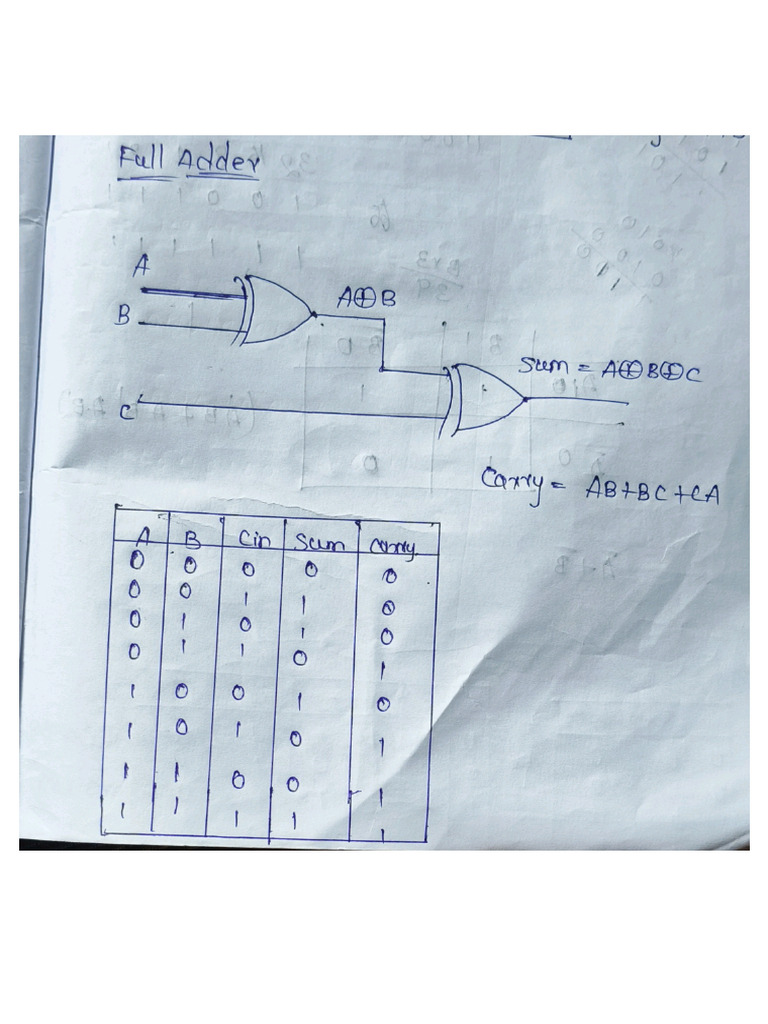 Full Adder
A
A⊕B
B
Sum = A⊕B⊕C
C
Carry = AB+BC+CA
A B Cin Sum carry
0 0 0 0 0
0 0 1 1 0
0 1 0 1 0
0 1 1 0 1
1 0 0 1 0
1 0 1 0 1
1 1 0 0 1
1 1 1 1 1